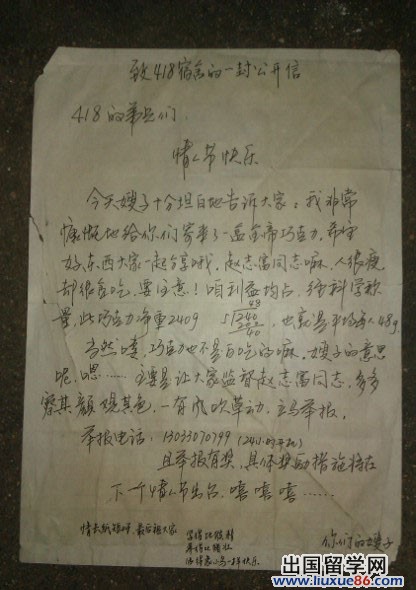 致418宿舍的一封公开信
418的弟兄们
情人节快乐
今天嫂子十分坦白地告诉大家：我非常
慷慨地给你们寄来了一盒金帝巧克力，希望
好东西大家一起分享哦，赵志富同志嘛，人很瘦
却很贪吃，要注意！咱利益均占，经科学称
量，此巴克力净重240g 5√240 48 200 40 也就是平均每人48g
当然喽，巧克力也不是白吃的嘛，嫂子的意思
呢，嗯……主要是让大家监督赵志富同志，多多
察其颜观其色，一有风吹草动，立马举报。
举报电话：13033070799（24小时开机）
且举报有奖，具体奖励措施将在
下一个情人节出台，嘻嘻嘻……
情长纸短，最后祝大家
你们的嫂子
出国留学网
www.liuxue86.com